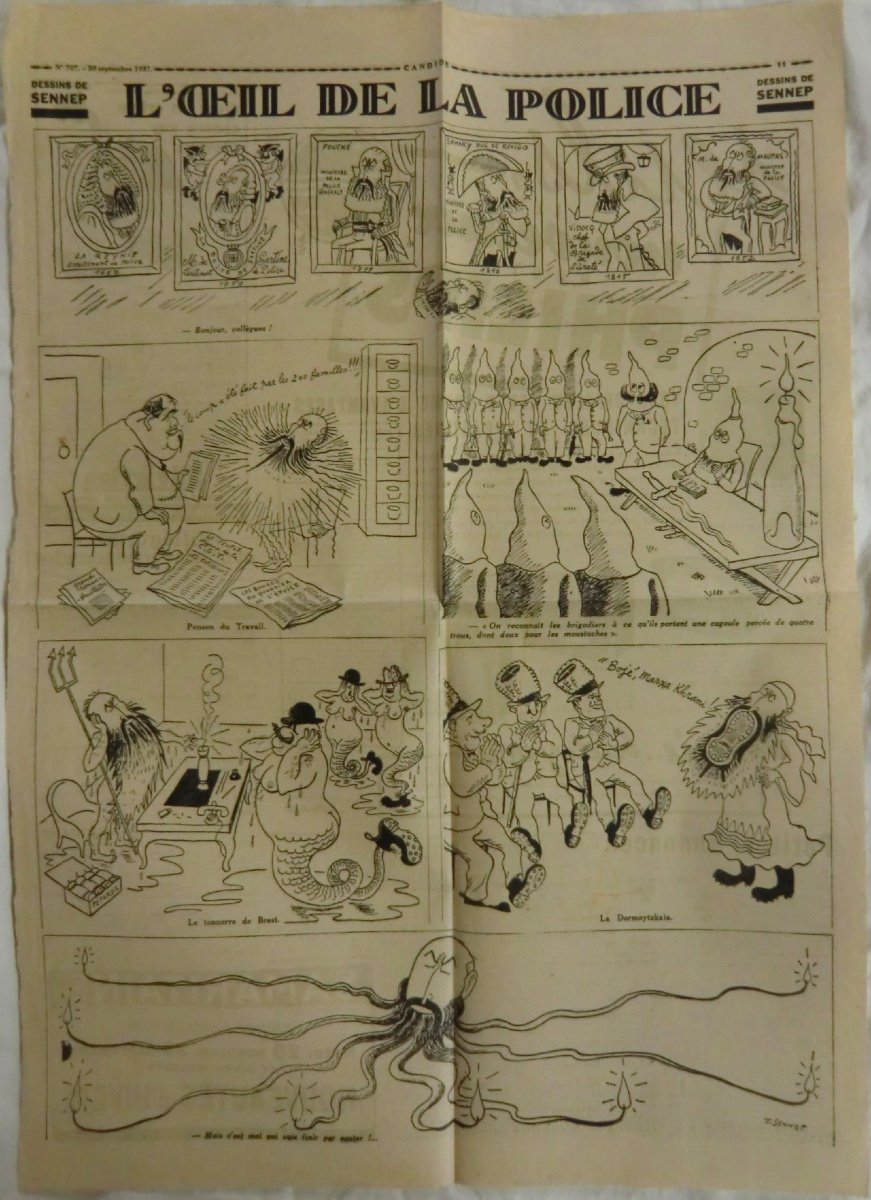 N° 707. - 30 septembre 1937.
CANDIDE
11
DESSINS DE
SENNEP
L'ŒIL DE LA POLICE
DESSINS DE
SENNEP
LA REYNIE
Lieutenant de Police
M. de Sartine
Lieutenant de Police
1759
FOUCHÉ
MINISTRE
DE LA
POLICE
GÉNÉRALE
1799
SAVARY DUC DE ROVIGO
MINISTRE
DE LA
POLICE
1810
VIDOCQ
chef
de la
Brigade
de
Sûreté
1815
M. de MAUPAS
MINISTRE
de la
POLICE
1852
— Bonjour, collègues !
le coup a été fait par les 200 familles !!!
Grand
Roman
Feuilleton
LES BOMBES
DE L'ETOILE
Ponson du Travail.
— « On reconnaît les brigadiers à ce qu'ils portent une cagoule percée de quatre
trous, dont deux pour les moustaches ».
Le tonnerre de Brest.
" Bojé, Marxa Khrani !
La Dormoytzkaïa.
— Mais c'est moi qui vais finir par sauter !...
J. SENNEP